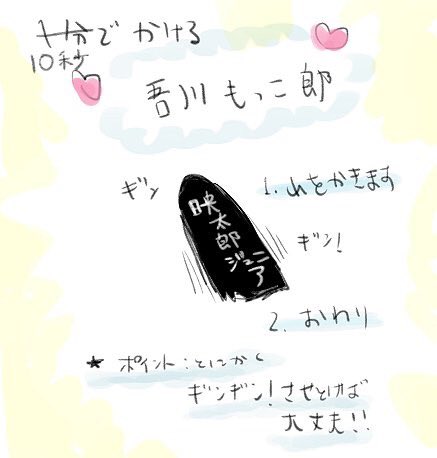 十分でかける
10秒
吾川もっこ郎
ギン
映太郎ジュニア
1. ハをかきます
ギン!
2. おわり
★ ポイント:とにかく
ギンギン!させとけば
大丈夫!!